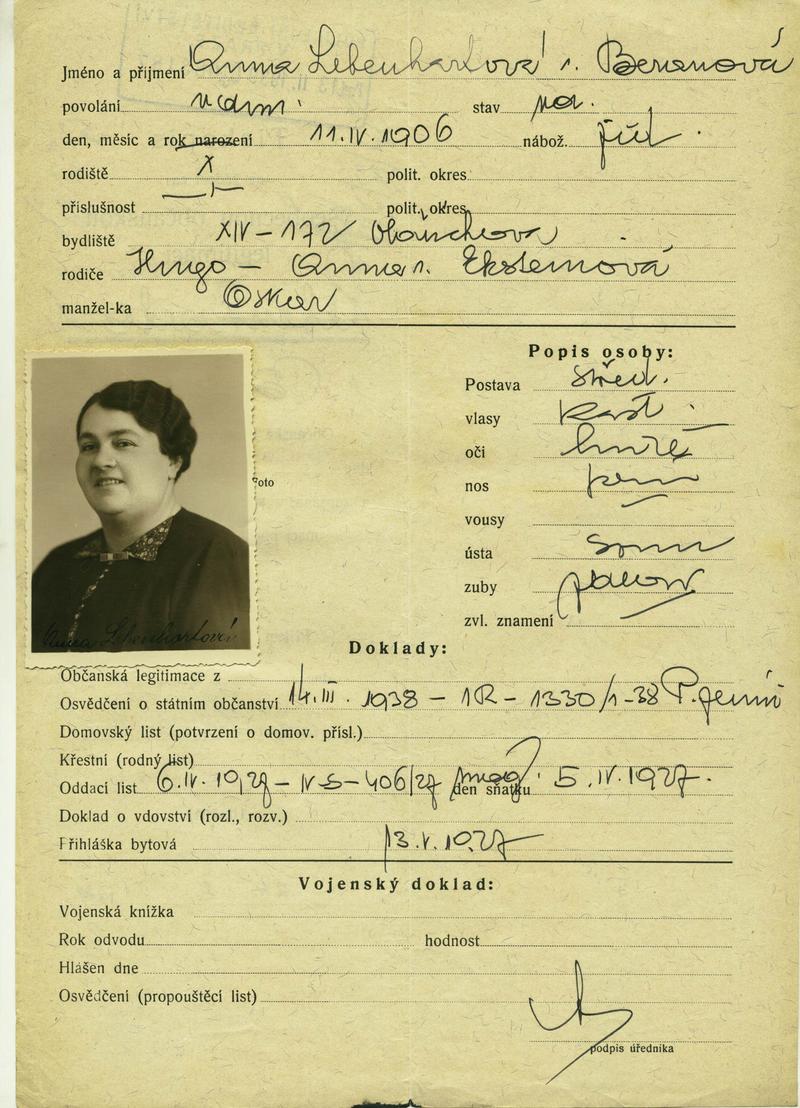 Jméno a přijmení Anna Lebenhartová r. Beranová
povolání v dom. stav
den, měsíc a rok narození 11.IV.1906 nábož. žid.
rodiště X polit. okres
příslušnost polit. okres
bydliště XIV - 172
rodiče Hugo - Anna r. Eksteinová
manžel-ka Oskar
Popis osoby:
Postava střed.
vlasy kašt.
oči hnědé
nos
vousy
ústa
zuby
zvl. znamení
Foto
Anna Lebenhartová
Doklady:
Občanská legitimace z
Osvědčení o státním občanství 14.III.1938 - 1R - 1330/1-38
Domovský list (potvrzení o domov. přísl.)
Křestní (rodný list)
Oddací list 6.IV.1927 - IV-5-406/27 den sňatku 5.IV.1927.
Doklad o vdovství (rozl., rozv.)
Přihláška bytová 13.V.1927
Vojenský doklad:
Vojenská knížka
Rok odvodu hodnost
Hlášen dne
Osvědčení (propouštěcí list)
podpis úředníka